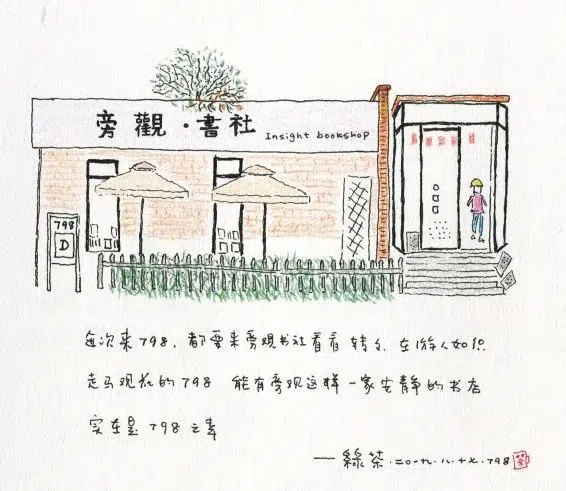 旁觀·書社 Insight bookshop
798
D
每次来798，都要来旁观书社看看 转转 在游人如织
走马观花的798 能有旁观这样一家安静的书店
实在是798之幸
— 綠茶·二〇一九·八·十七·798